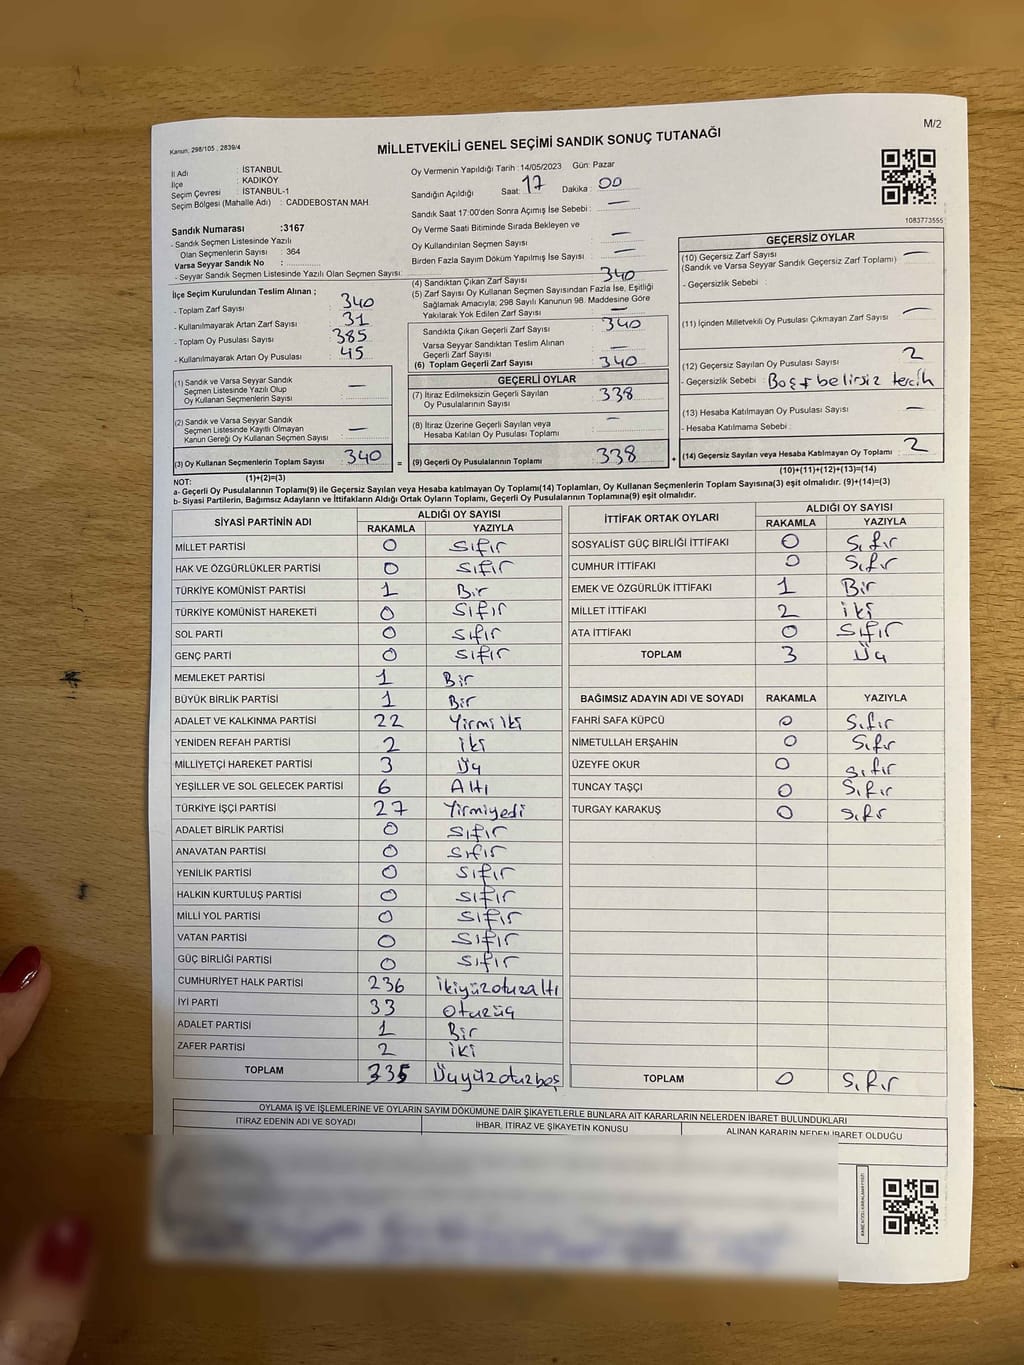 M/2
Kanun, 298/105 , 2839/4
MİLLETVEKİLİ GENEL SEÇİMİ SANDIK SONUÇ TUTANAĞI
İl Adı : İSTANBUL
İlçe : KADIKÖY
Seçim Çevresi : İSTANBUL-1
Seçim Bölgesi (Mahalle Adı) : CADDEBOSTAN MAH
Sandık Numarası :3167
- Sandık Seçmen Listesinde Yazılı
Olan Seçmenlerin Sayısı : 364
Varsa Seyyar Sandık No :
- Seyyar Sandık Seçmen Listesinde Yazılı Olan Seçmen Sayısı:
Oy Vermenin Yapıldığı Tarih : 14/05/2023 Gün: Pazar
Sandığın Açıldığı Saat: 17 Dakika : 00
Sandık Saat 17:00'den Sonra Açımış İse Sebebi : —
Oy Verme Saati Bitiminde Sırada Bekleyen ve
Oy Kullandırılan Seçmen Sayısı —
Birden Fazla Sayım Döküm Yapılmış İse Sayısı : —
1083773555
İlçe Seçim Kurulundan Teslim Alınan ;
- Toplam Zarf Sayısı : 340
- Kullanılmayarak Artan Zarf Sayısı : 31
- Toplam Oy Pusulası Sayısı : 385
- Kullanılmayarak Artan Oy Pusulası : 45
(1) Sandık ve Varsa Seyyar Sandık
Seçmen Listesinde Yazılı Olup
Oy Kullanan Seçmenlerin Sayısı : —
(2) Sandık ve Varsa Seyyar Sandık
Seçmen Listesinde Kayıtlı Olmayan
Kanun Gereği Oy Kullanan Seçmen Sayısı : —
(3) Oy Kullanan Seçmenlerin Toplam Sayısı 340 =
(1)+(2)=(3)
(4) Sandıktan Çıkan Zarf Sayısı : 340
(5) Zarf Sayısı Oy Kullanan Seçmen Sayısından Fazla İse, Eşitliği
Sağlamak Amacıyla; 298 Sayılı Kanunun 98. Maddesine Göre
Yakılarak Yok Edilen Zarf Sayısı : —
Sandıkta Çıkan Geçerli Zarf Sayısı : 340
Varsa Seyyar Sandıktan Teslim Alınan
Geçerli Zarf Sayısı : —
(6) Toplam Geçerli Zarf Sayısı : 340
GEÇERLİ OYLAR
(7) İtiraz Edilmeksizin Geçerli Sayılan
Oy Pusulalarının Sayısı : 338
(8) İtiraz Üzerine Geçerli Sayılan veya
Hesaba Katılan Oy Pusulası Toplamı : —
(9) Geçerli Oy Pusulalarının Toplamı : 338 +
GEÇERSİZ OYLAR
(10) Geçersiz Zarf Sayısı : —
(Sandık ve Varsa Seyyar Sandık Geçersiz Zarf Toplamı)
- Geçersizlik Sebebi :
(11) İçinden Milletvekili Oy Pusulası Çıkmayan Zarf Sayısı : —
(12) Geçersiz Sayılan Oy Pusulası Sayısı : 2
- Geçersizlik Sebebi : Boş+belirsiz tercih
(13) Hesaba Katılmayan Oy Pusulası Sayısı : —
- Hesaba Katılmama Sebebi :
(14) Geçersiz Sayılan veya Hesaba Katılmayan Oy Toplamı : 2
(10)+(11)+(12)+(13)=(14)
NOT:
a- Geçerli Oy Pusulalarının Toplamı(9) ile Geçersiz Sayılan veya Hesaba katılmayan Oy Toplamı(14) Toplamları, Oy Kullanan Seçmenlerin Toplam Sayısına(3) eşit olmalıdır. (9)+(14)=(3)
b- Siyasi Partilerin, Bağımsız Adayların ve İttifakların Aldığı Ortak Oyların Toplamı, Geçerli Oy Pusulalarının Toplamına(9) eşit olmalıdır.
SİYASİ PARTİNİN ADI ALDIĞI OY SAYISI
RAKAMLA YAZIYLA
MİLLET PARTİSİ 0 sıfır
HAK VE ÖZGÜRLÜKLER PARTİSİ 0 sıfır
TÜRKİYE KOMÜNİST PARTİSİ 1 Bir
TÜRKİYE KOMÜNİST HAREKETİ 0 sıfır
SOL PARTİ 0 sıfır
GENÇ PARTİ 0 sıfır
MEMLEKET PARTİSİ 1 Bir
BÜYÜK BİRLİK PARTİSİ 1 Bir
ADALET VE KALKINMA PARTİSİ 22 Yirmi iki
YENİDEN REFAH PARTİSİ 2 iki
MİLLİYETÇİ HAREKET PARTİSİ 3 Üç
YEŞİLLER VE SOL GELECEK PARTİSİ 6 Altı
TÜRKİYE İŞÇİ PARTİSİ 27 Yirmiyedi
ADALET BİRLİK PARTİSİ 0 sıfır
ANAVATAN PARTİSİ 0 sıfır
YENİLİK PARTİSİ 0 sıfır
HALKIN KURTULUŞ PARTİSİ 0 sıfır
MİLLİ YOL PARTİSİ 0 sıfır
VATAN PARTİSİ 0 sıfır
GÜÇ BİRLİĞİ PARTİSİ 0 sıfır
CUMHURİYET HALK PARTİSİ 236 ikiyüzotuzaltı
İYİ PARTİ 33 otuzüç
ADALET PARTİSİ 1 Bir
ZAFER PARTİSİ 2 iki
TOPLAM 335 Üçyüzotuzbeş
İTTİFAK ORTAK OYLARI ALDIĞI OY SAYISI
RAKAMLA YAZIYLA
SOSYALİST GÜÇ BİRLİĞİ İTTİFAKI 0 Sıfır
CUMHUR İTTİFAKI 0 Sıfır
EMEK VE ÖZGÜRLÜK İTTİFAKI 1 Bir
MİLLET İTTİFAKI 2 iki
ATA İTTİFAKI 0 sıfır
TOPLAM 3 Üç
BAĞIMSIZ ADAYIN ADI VE SOYADI RAKAMLA YAZIYLA
FAHRİ SAFA KÜPCÜ 0 Sıfır
NİMETULLAH ERŞAHİN 0 Sıfır
ÜZEYFE OKUR 0 sıfır
TUNCAY TAŞÇI 0 Sıfır
TURGAY KARAKUŞ 0 sıfır
TOPLAM 0 Sıfır
OYLAMA İŞ VE İŞLEMLERİNE VE OYLARIN SAYIM DÖKÜMÜNE DAİR ŞİKAYETLERLE BUNLARA AİT KARARLARIN NELERDEN İBARET BULUNDUKLARI
İTİRAZ EDENİN ADI VE SOYADI İHBAR, İTİRAZ VE ŞİKAYETİN KONUSU ALINAN KARARIN NEDEN İBARET OLDUĞU